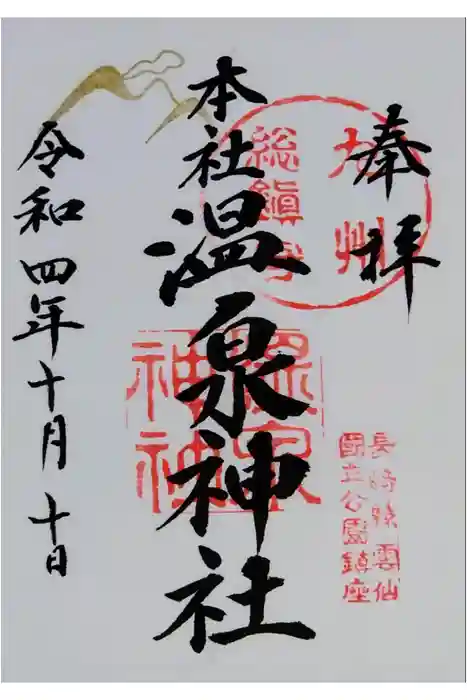 奉拝
九州
総鎮守
本社
温泉神社
温泉
神社
長崎縣雲仙
國立公園鎮座
令和四年十月十日